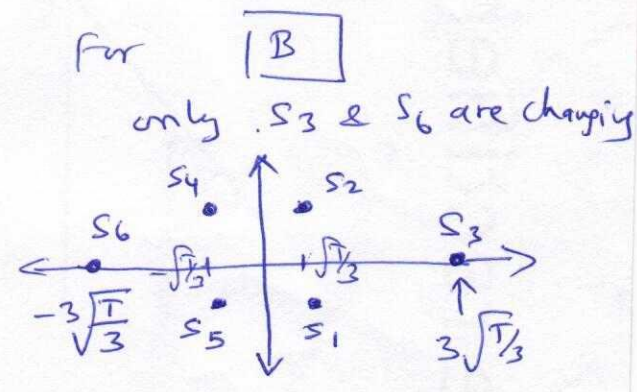 For B
only S3 & S6 are changing
S4 S2
S6 S3
-√T/3 √T/3
-3√T/3 S5 S1 3√T/3